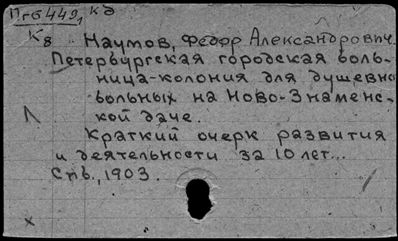 Пг6449, кд
К8 Наумов, Федор Александрович.
Петербургская городская боль-
ница-колония для душевно
больных на Ново-Знаменс-
кой даче.
Краткий очерк развития
и деятельности за 10 лет...
Спб., 1903.